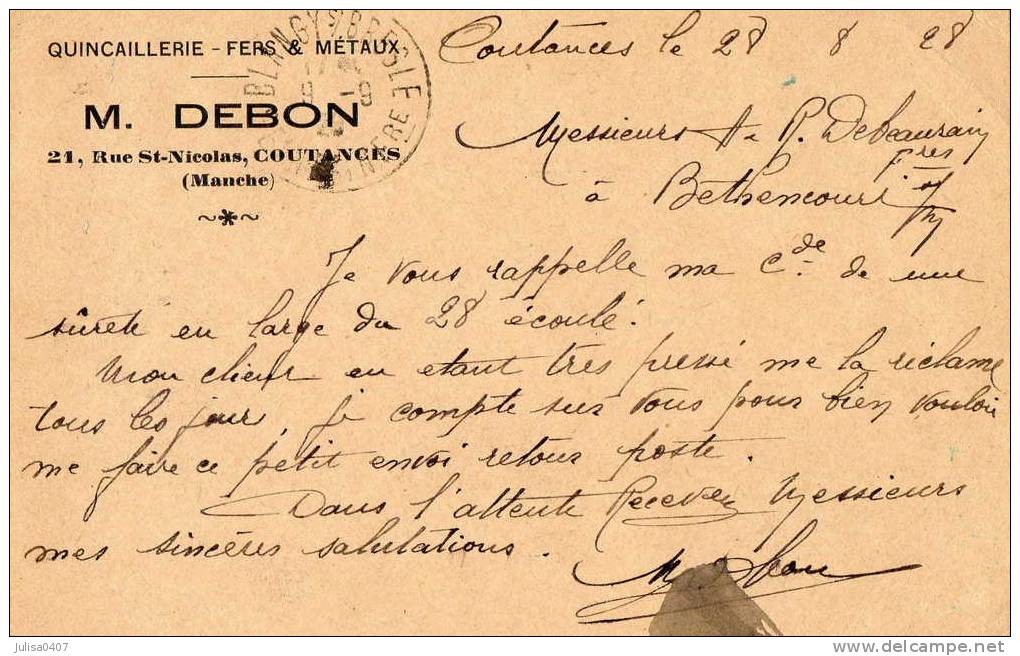 QUINCAILLERIE - FERS & MÉTAUX
M. DEBON
21, Rue St-Nicolas, COUTANCES
(Manche)
BLANGY S/ BRESLE
Coutances le 28 8 28
Messieurs A & R. Debeaurain
frères
à Bethencourt s/m
Je vous rappelle ma Cde de une
sûreté en large du 28 écoulé.
Mon client en etant très pressé me la réclame
tous les jour, je compte sur vous pour bien vouloir
me faire ce petit envoi retour poste.
Dans l'attente Recevez Messieurs
mes sincères salutations.
julisa0407
delcampe.net